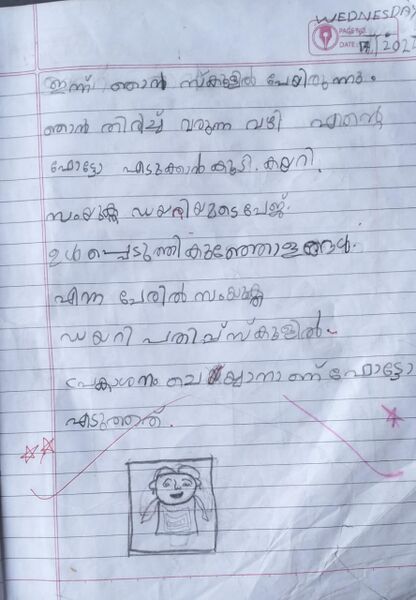 WEDNESDAY
PAGE NO
DATE: 17/ /202
ഇന്ന് ഞാൻ സ്കൂളിൽ പോയിരുന്നു.
ഞാൻ തിരിച്ച് വരുന്ന വഴി എന്റെ
ഫോട്ടോ എടുക്കാൻ കൂടി. കയറി.
സംയുക്ത ഡയരിയുടെ പേജ്.
ഉൾപ്പെടുത്തി കുഞ്ഞോളങ്ങൾ.
എന്ന പേരിൽ സംയുക്ത
ഡയറി പതിച്ച് സ്കൂളിൽ.
പ്രകാശനം ചെയ്യാനാണ് ഫോട്ടോ
എടുത്തത്.